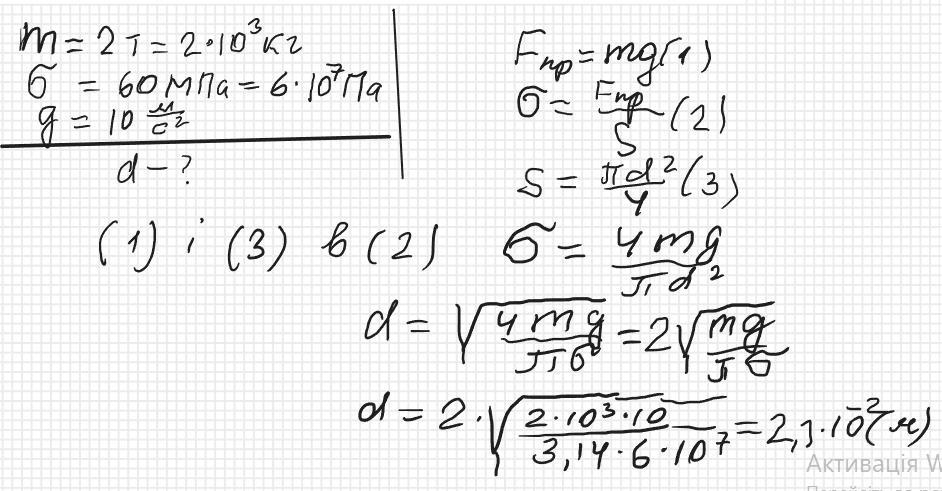 m = 2 т = 2·10³ кг
σ = 60 МПа = 6·10⁷ Па
g = 10 м/с²
d - ?
Fпр = mg (1)
σ = Fпр/S (2)
S = πd²/4 (3)
(1) і (3) в (2) σ = 4mg/πd²
d = √(4mg/πσ) = 2√(mg/πσ)
d = 2·√(2·10³·10/3,14·6·10⁷) = 2,1·10⁻² (м)
Активація W